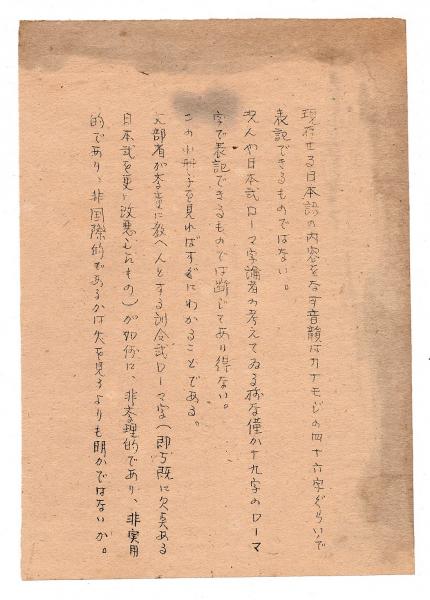 現存せる日本語の内容をなす音韻はカナモジの四十六字ぐらいで
表記できるものではない。
況んや日本式ローマ字論者の考えてゐる様な僅か十九字のローマ
字で表記できるものでは断じてあり得ない。
この小册子を見ればすぐにわかることである。
文部省が学童に教へんとする訓令式ローマ字(即ち既に欠点ある
日本式を更に改悪したもの)が如何に、非学理的であり、非実用
的であり、非国際的であるかは火を見るよりも明かではないか。